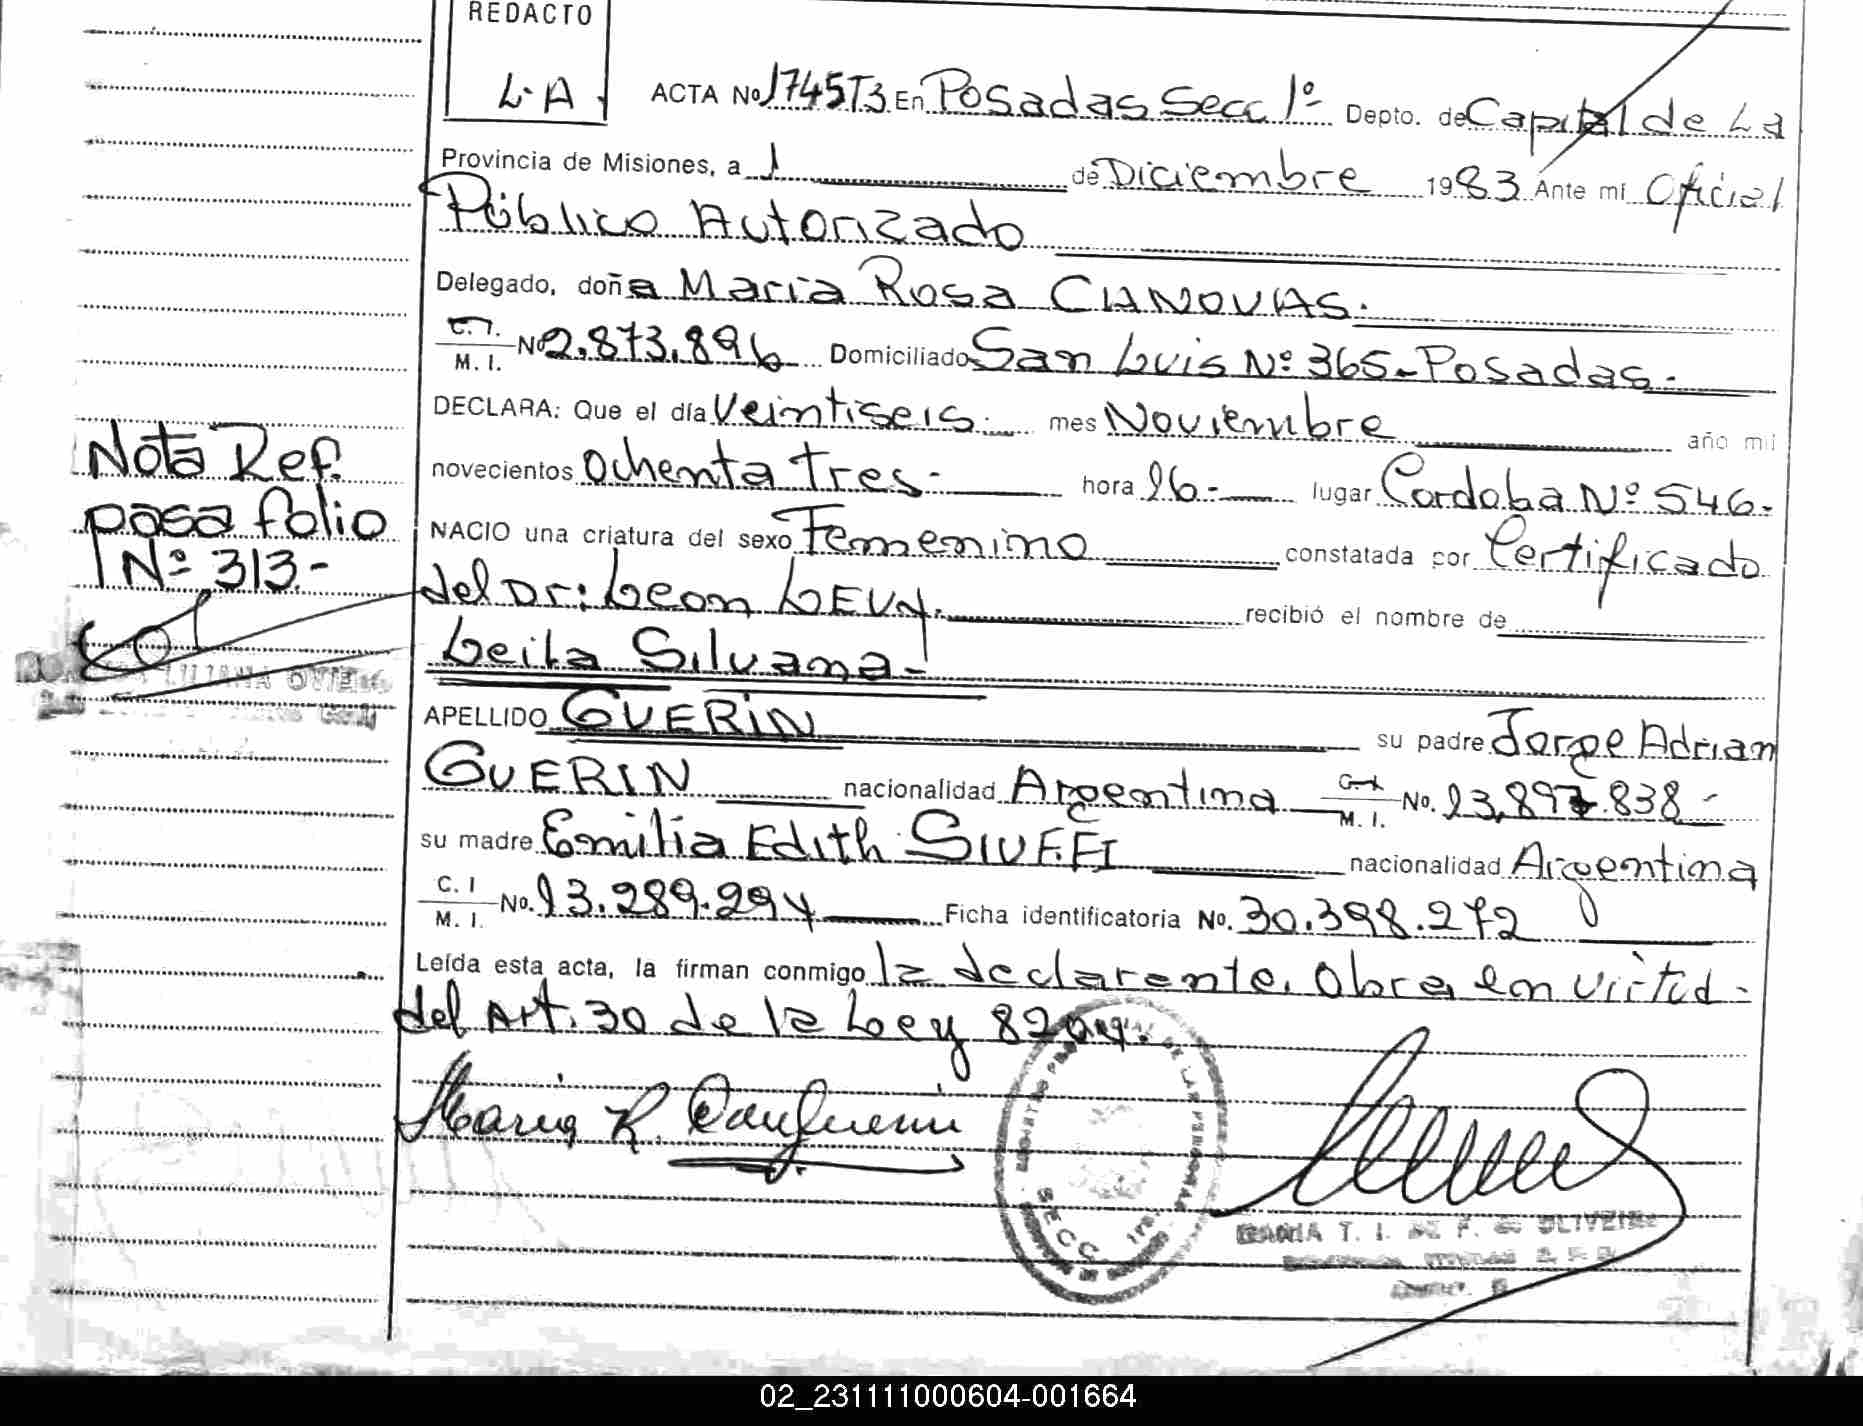 REDACTO
L.A.
ACTA No 1745T3 En Posadas Secc 1º Depto. de Capital de La
Provincia de Misiones, a 1 de Diciembre 1983 Ante mí Oficial
Público Autorizado
Delegado, doña Maria Rosa CANOVAS.
C.I. M. I. Nº 2.873.896 Domiciliado San Luis Nº 365-Posadas.
DECLARA: Que el día Veintiseis mes Noviembre año mil
novecientos Ochenta tres- hora 16- lugar Cordoba Nº 546-
NACIO una criatura del sexo Femenino constatada por Certificado
del Dr: Leon LEVY. recibió el nombre de
Leila Silvana-
APELLIDO GUERIN su padre Jorge Adrian
GUERIN nacionalidad Argentina C.I. M. I. No. 13,897.838-
su madre Emilia Edith SIUFFI nacionalidad Argentina
C. I M. I. No. 13.289.294 Ficha identificatoria No. 30.398.272
Leída esta acta, la firman conmigo la declarente. Obra en virtud-
del Art. 30 de la Ley 8204.
Nota Ref.
pasa folio
Nº 313-
LILIANA OVIEDO
Maria R.
SECC. 1ra.
MARIA T. I. DE F. DE OLIVEIRA
02_231111000604-001664